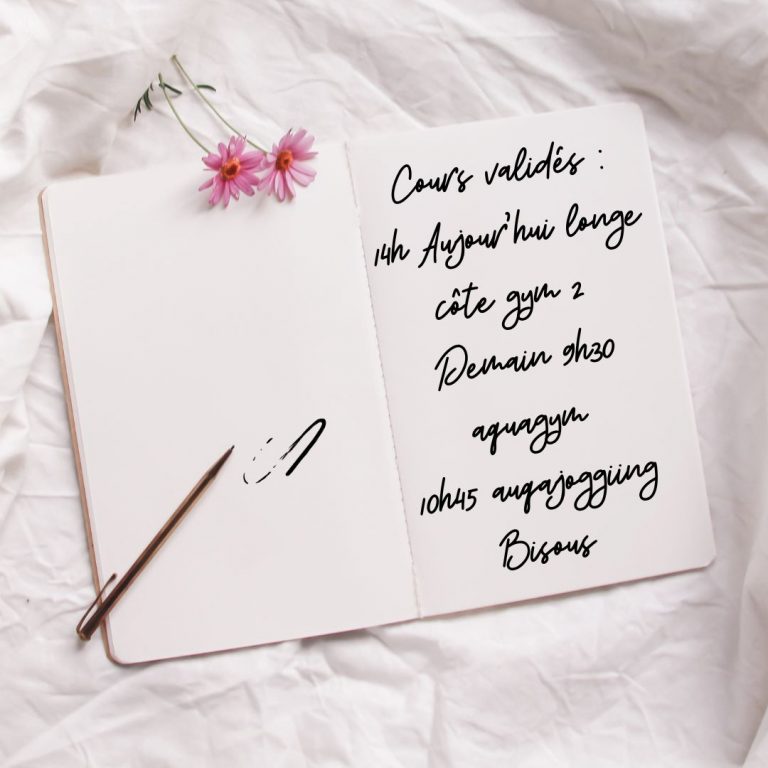 Cours validés :
14h Aujour'hui longe
côte gym 2
Demain 9h30
aquagym
10h45 auqajoggiing
Bisous